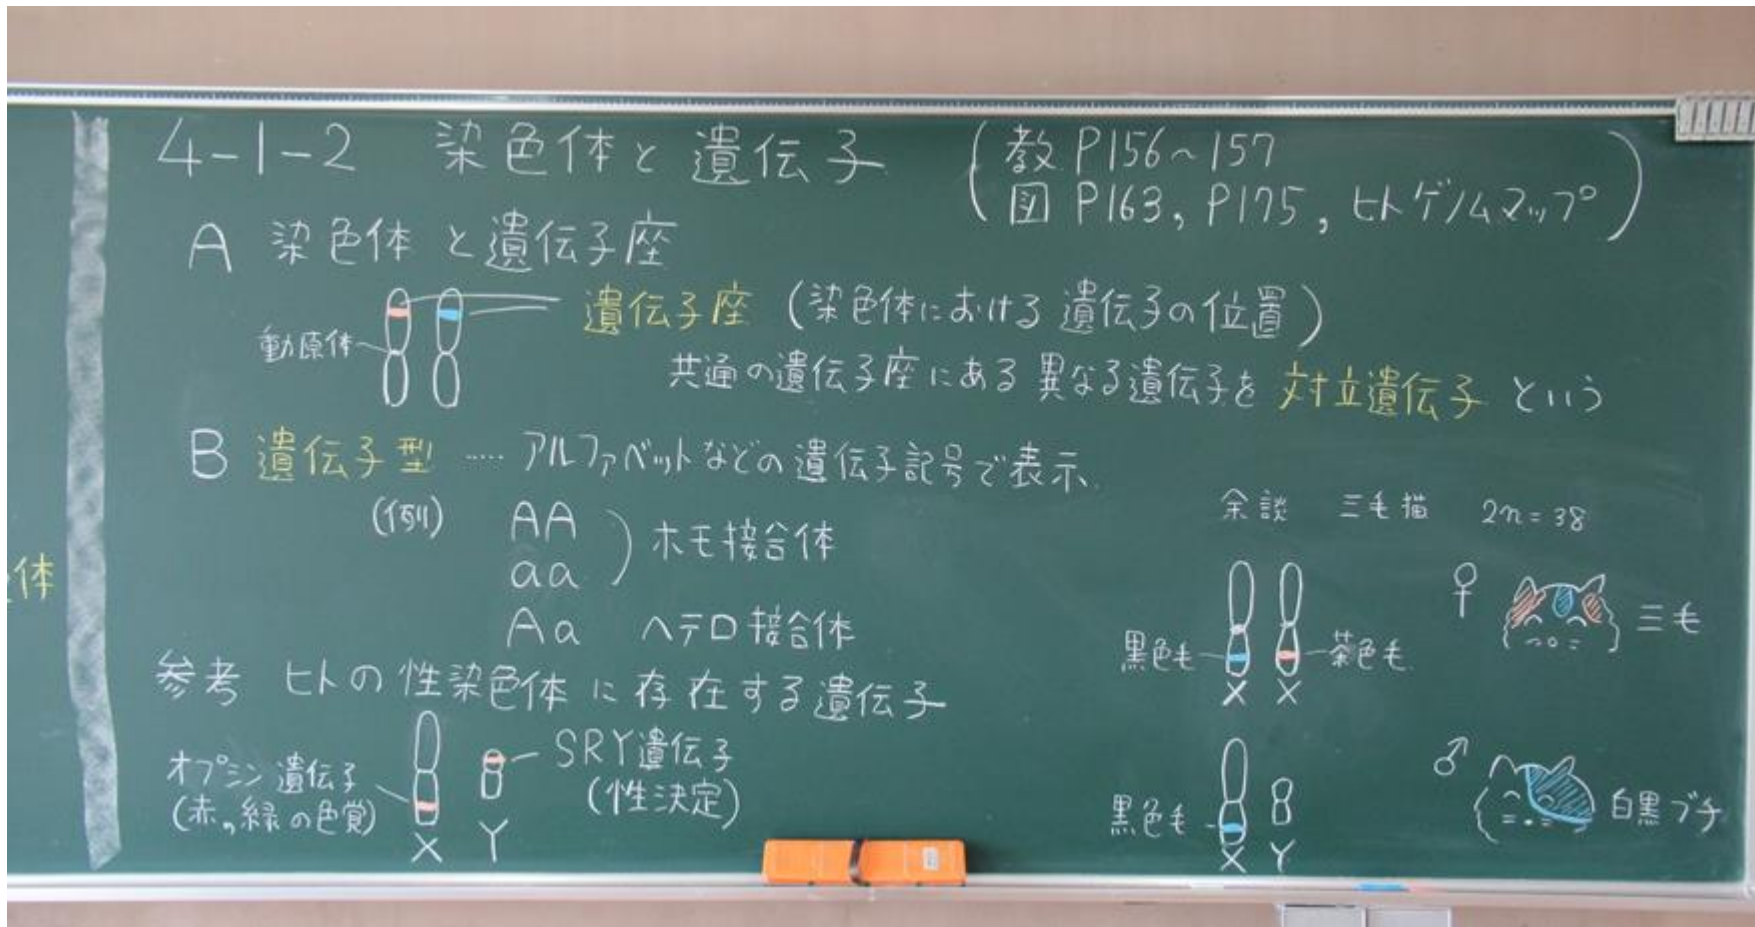 4-1-2 染色体と遺伝子
(教 P156~157
図 P163, P175, ヒトゲノムマップ)
A 染色体と遺伝子座
遺伝子座 (染色体における遺伝子の位置)
動原体
共通の遺伝子座にある異なる遺伝子を対立遺伝子という
B 遺伝子型 ‥‥ アルファベットなどの遺伝子記号で表示
(例) AA
aa
ホモ接合体
Aa ヘテロ接合体
体
参考 ヒトの性染色体に存在する遺伝子
オプシン遺伝子
(赤,緑の色覚)
X Y
SRY遺伝子
(性決定)
余談 三毛猫 2n=38
黒色毛
茶色毛
X X
♀ 三毛
黒色毛
X Y
♂ 白黒ブチ